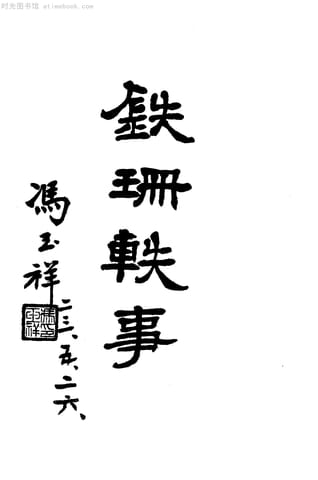 时光图书馆 atimebook.com
鉄珊軼事
馮玉祥
二三、五、二六、